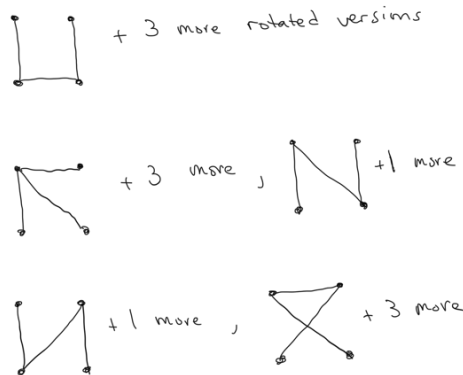 + 3 more rotated versims
+ 3 more , +1 more
+ 1 more , + 3 more